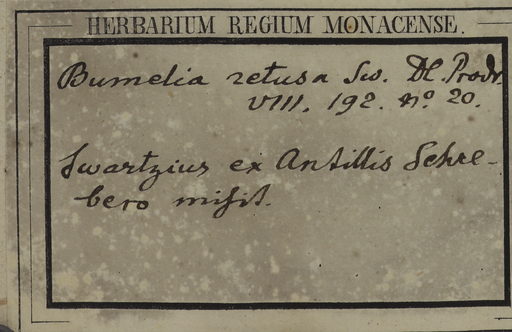 HERBARIUM REGIUM MONACENSE.
Bumelia retusa Sw. DC. Prodr.
VIII. 192. no. 20.
Swartzius ex Antillis Schre-
bero misit.